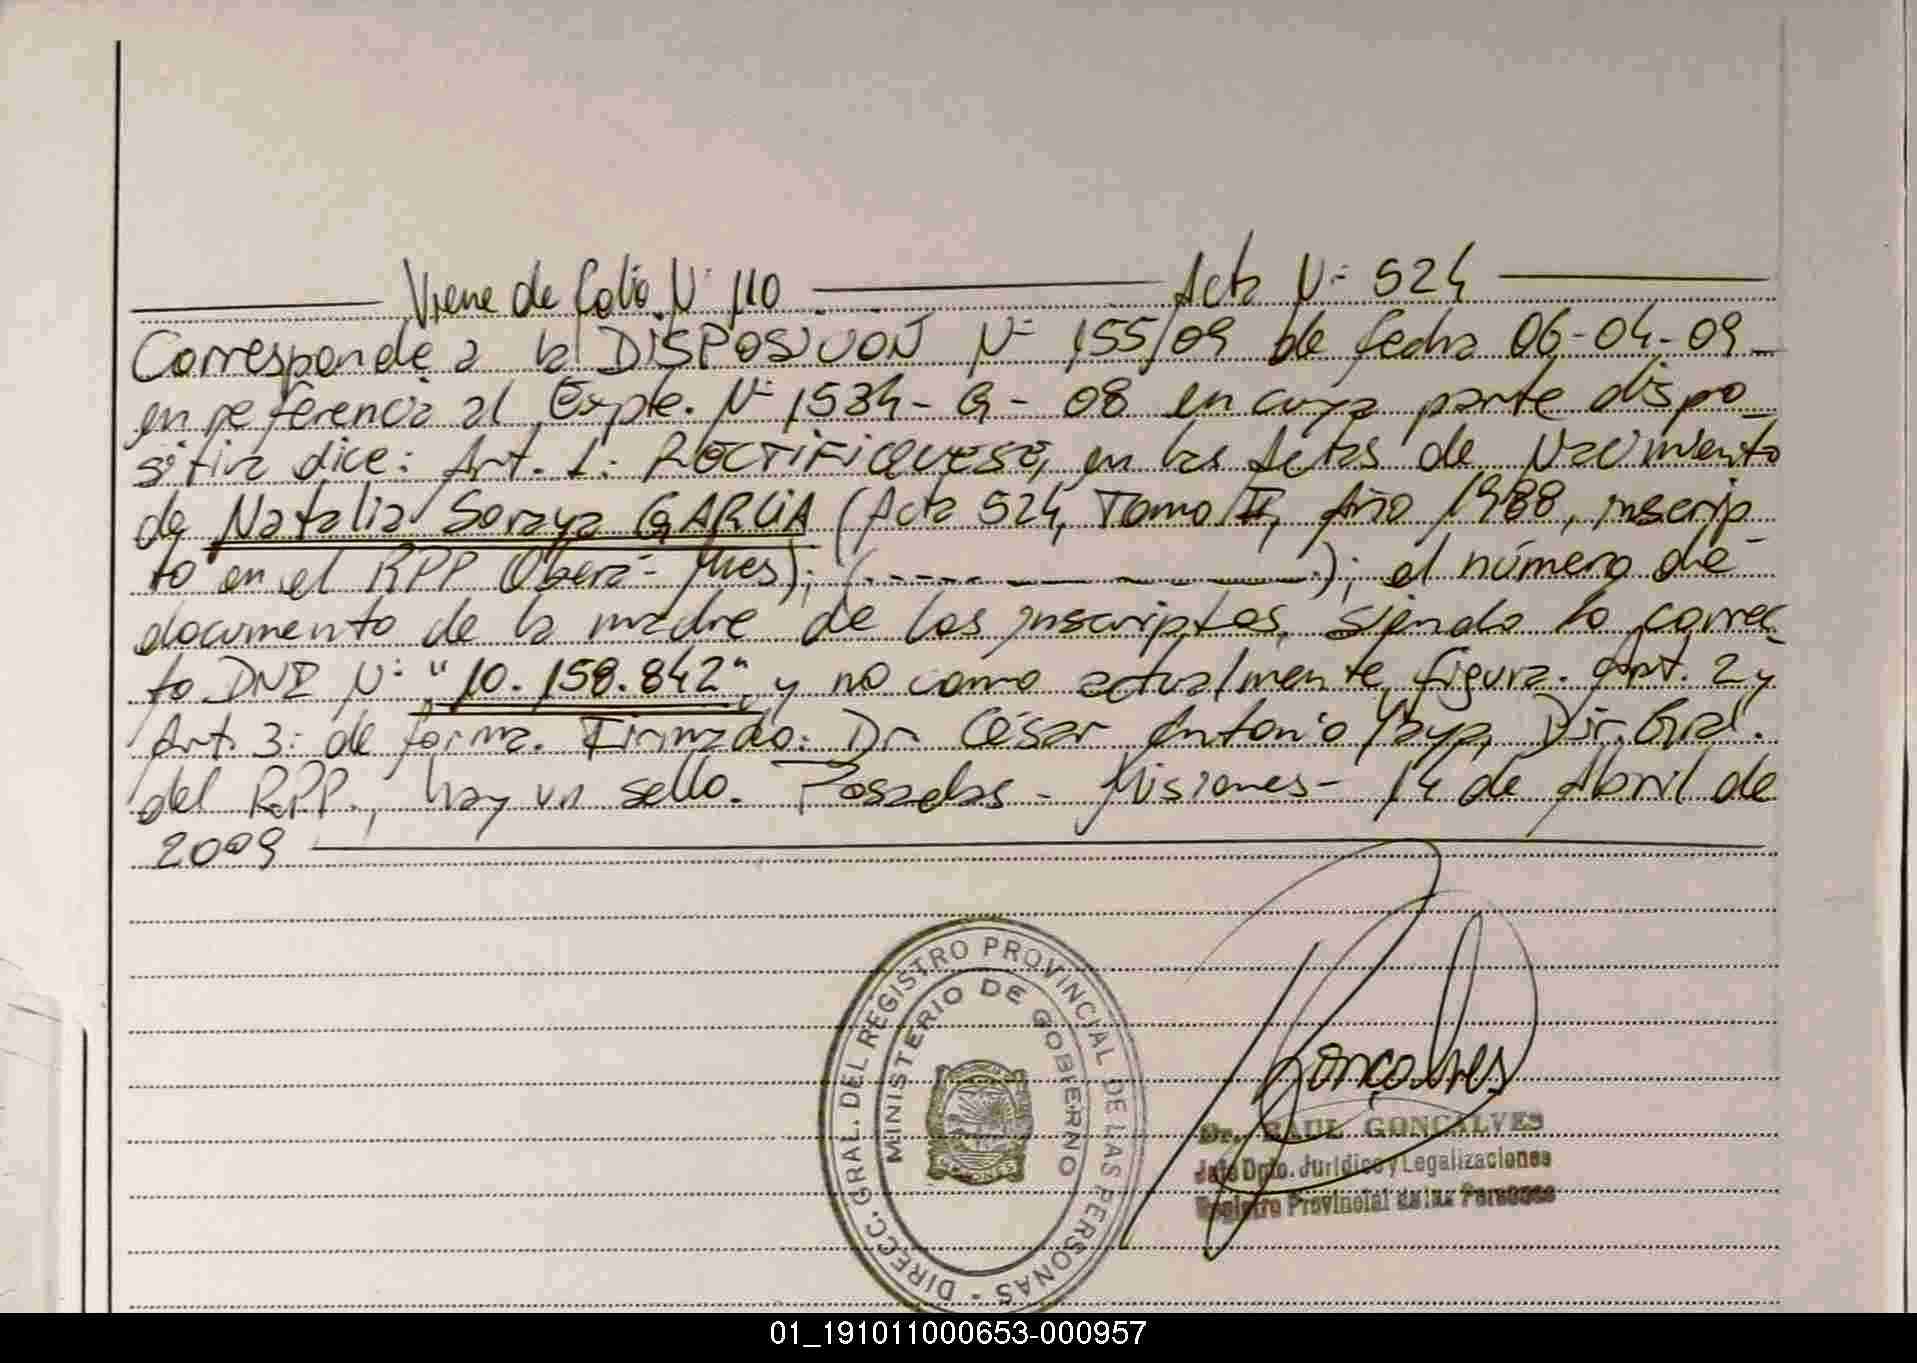 Viene de folio Nº 110 Acta Nº 524
Corresponde a la DISPOSICIÓN Nº 155/09 de fecha 06-04-09
en referencia al Expte. Nº 1534-G-08 en cuya parte dispo
sitiva dice: Art. 1: RECTIFIQUESE, en las Actas de Nacimiento
de Natalia Soraya GARCIA (Acta 524, Tomo II, Año 1988, inscrip
to en el RPP Oberá-Mnes); (.... ); el número de
documento de la madre de los inscriptos, siendo lo correc
to DNI Nº "10.158.842" y no como actualmente figura. Art. 2 y
Art. 3: de forma. Firmado: Dr César Antonio Yaya, Dir. Gral.
del RPP., hay un sello. Posadas - Misiones - 14 de Abril de
2009
DIRECC. GRAL. DEL REGISTRO PROVINCIAL DE LAS PERSONAS -
MINISTERIO DE GOBERNO
MISIONES
Goncalves
Dr. RAUL GONCALVES
Jefe Dpto. Jurídico y Legalizaciones
Registro Provincial de las Personas
01_191011000653-000957